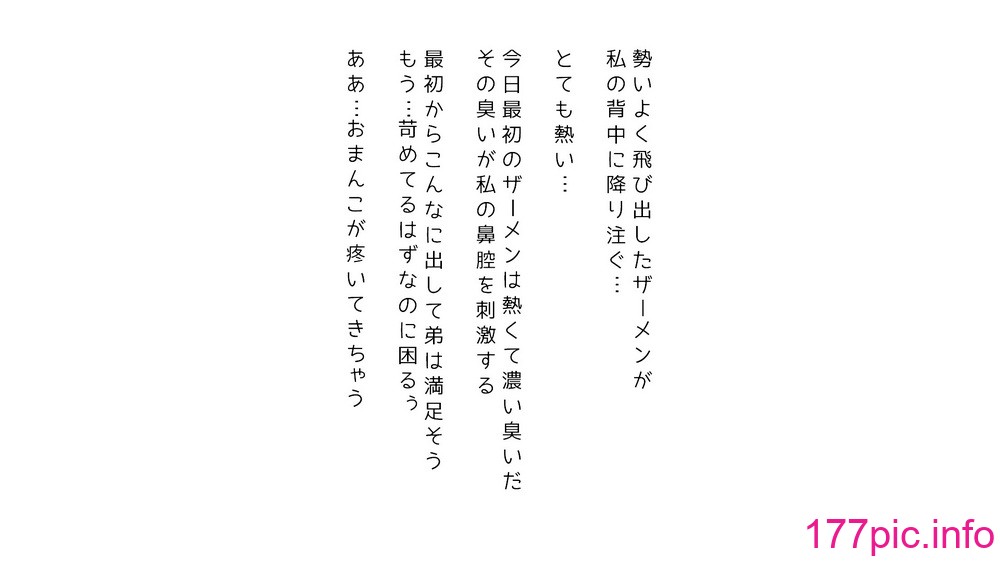 勢いよく飛び出したザーメンが
私の背中に降り注ぐ…
とても熱い…
今日最初のザーメンは熱くて濃い臭いだ
その臭いが私の鼻腔を刺激する
最初からこんなに出して弟は満足そう
もう…苛めてるはずなのに困るぅ
ああ…おまんこが疼いてきちゃう
177pic.info